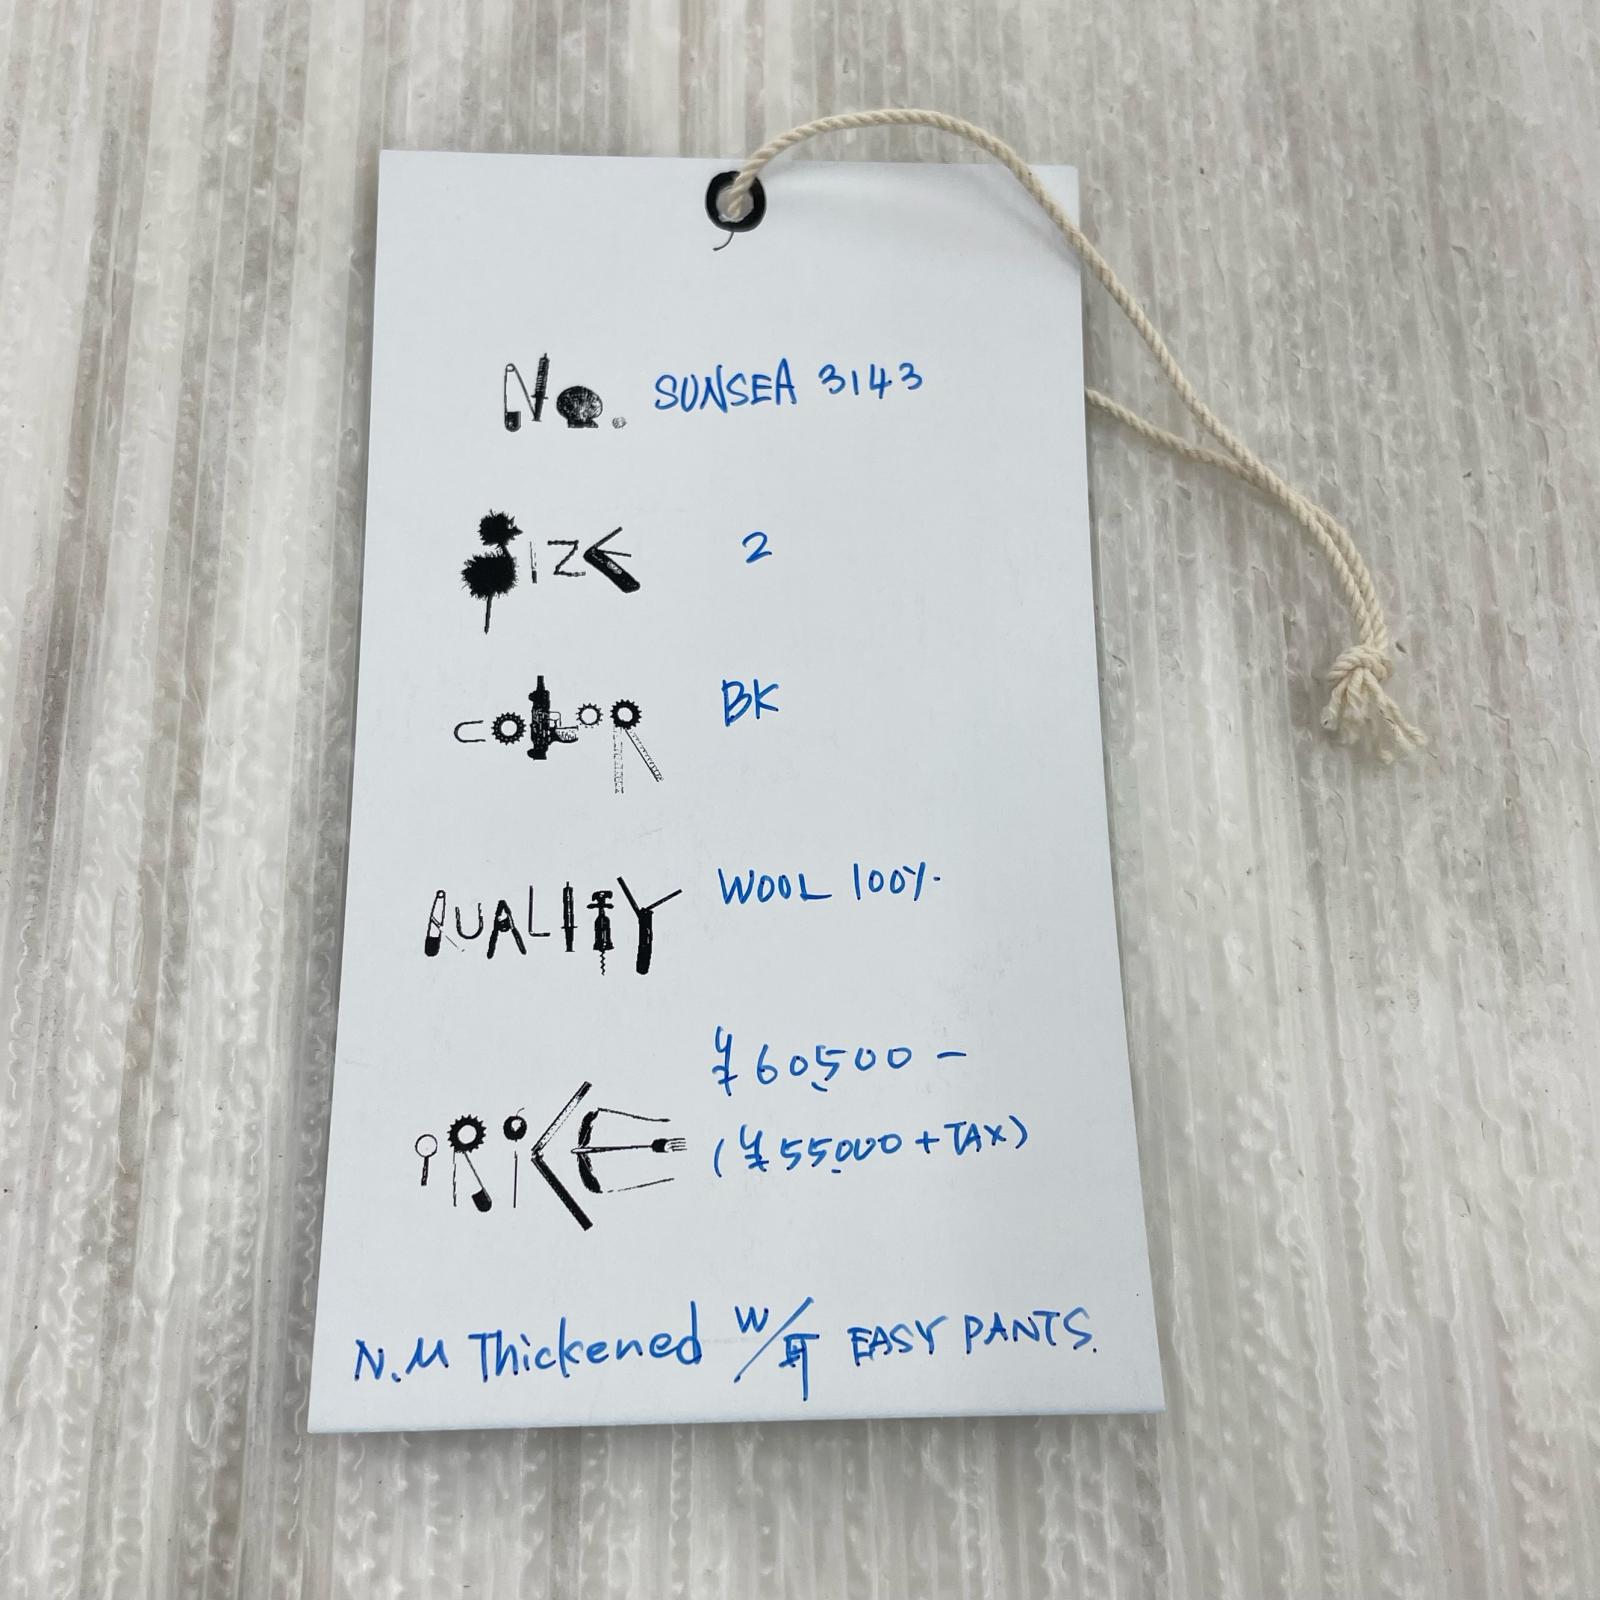 No. SUNSEA 3143
SIZE 2
COLOR BK
QUALITY WOOL 100%
PRICE ¥60,500-
(¥55,000+TAX)
N.M Thickened W/耳 EASY PANTS.